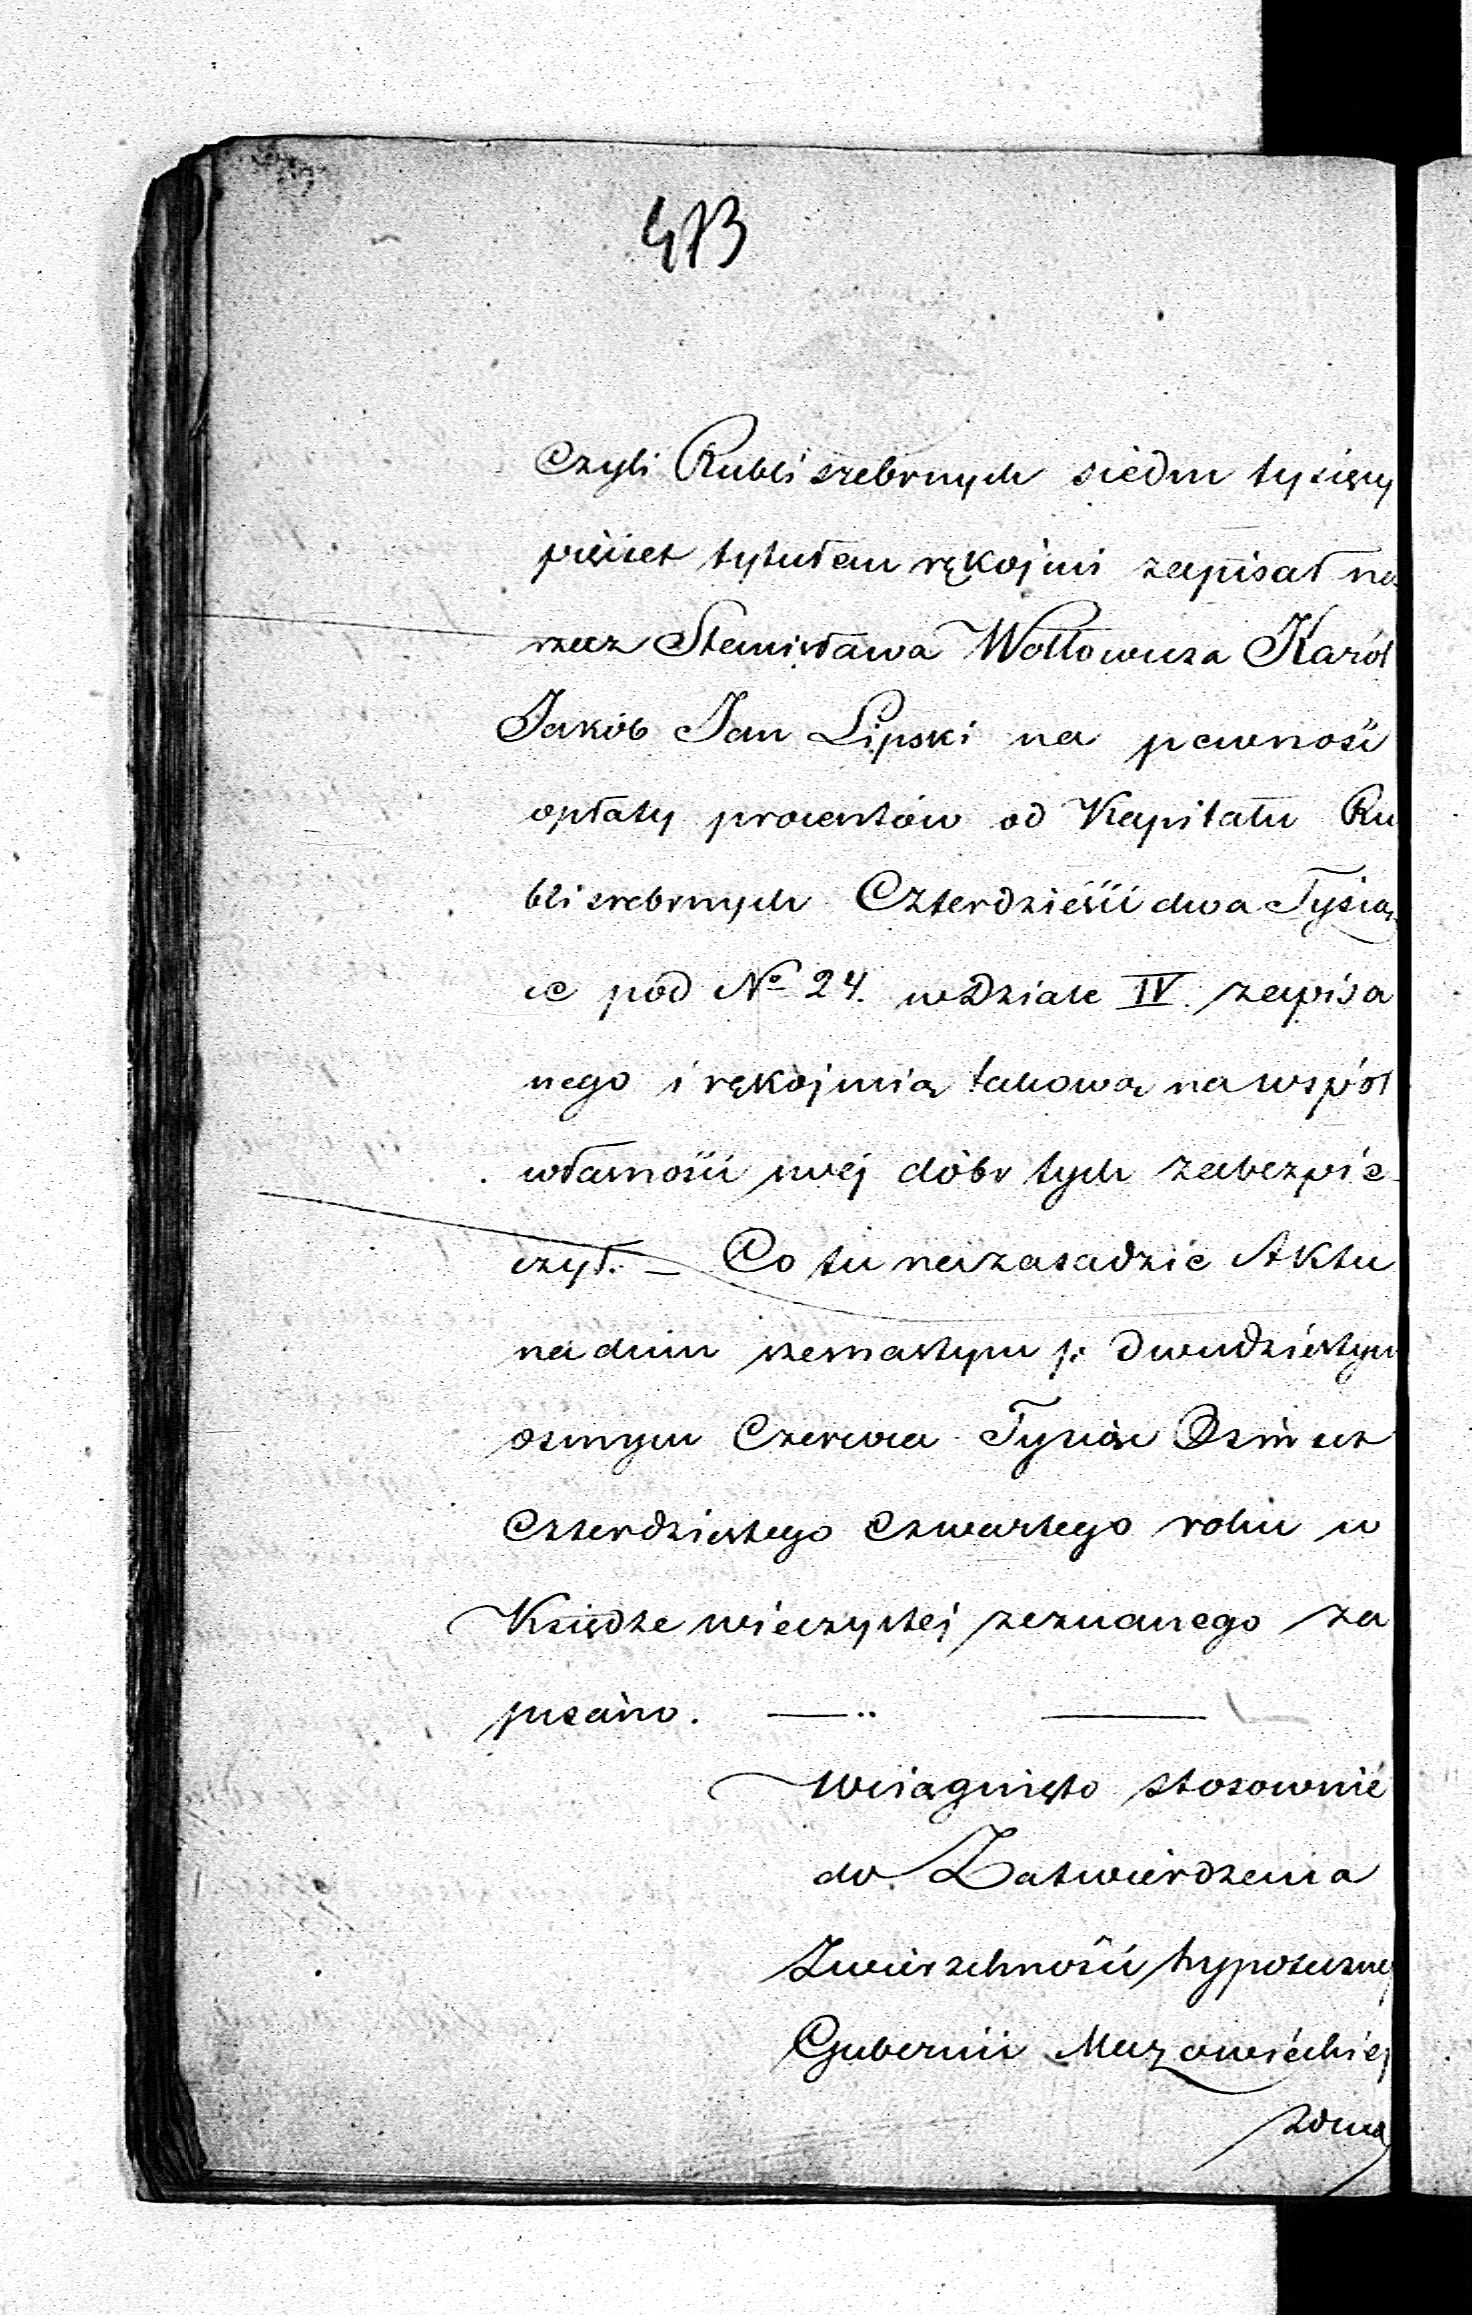 473
czyli Rubli srebrnych siedm tysięcy
pięćset tytułem rękojmi zapisał na
rzecz Stanisława Wołłowicza Karól
Jakób Jan Lipski na pewność
opłaty procentów od Kapitału Ru
bli srebrnych Czterdzieści dwa Tysią
ce pod № 24. w Dziale IV. zapisa
nego i rękojmią takową na współ
własności swej dóbr tych zabezpie-
czył. — Co tu na zasadzie Aktu
na dniu szesnastym /: dwudziestym
osmym Czerwca Tysiąc Ośmset
Czterdziestego czwartego roku w
Księdze wieczystej zeznanego za
pisano. —
Wciągnięto stosownie
do Zatwierdzenia
Zwierzchności hypotecznej
Gubernii Mazowieckiej
z dnia